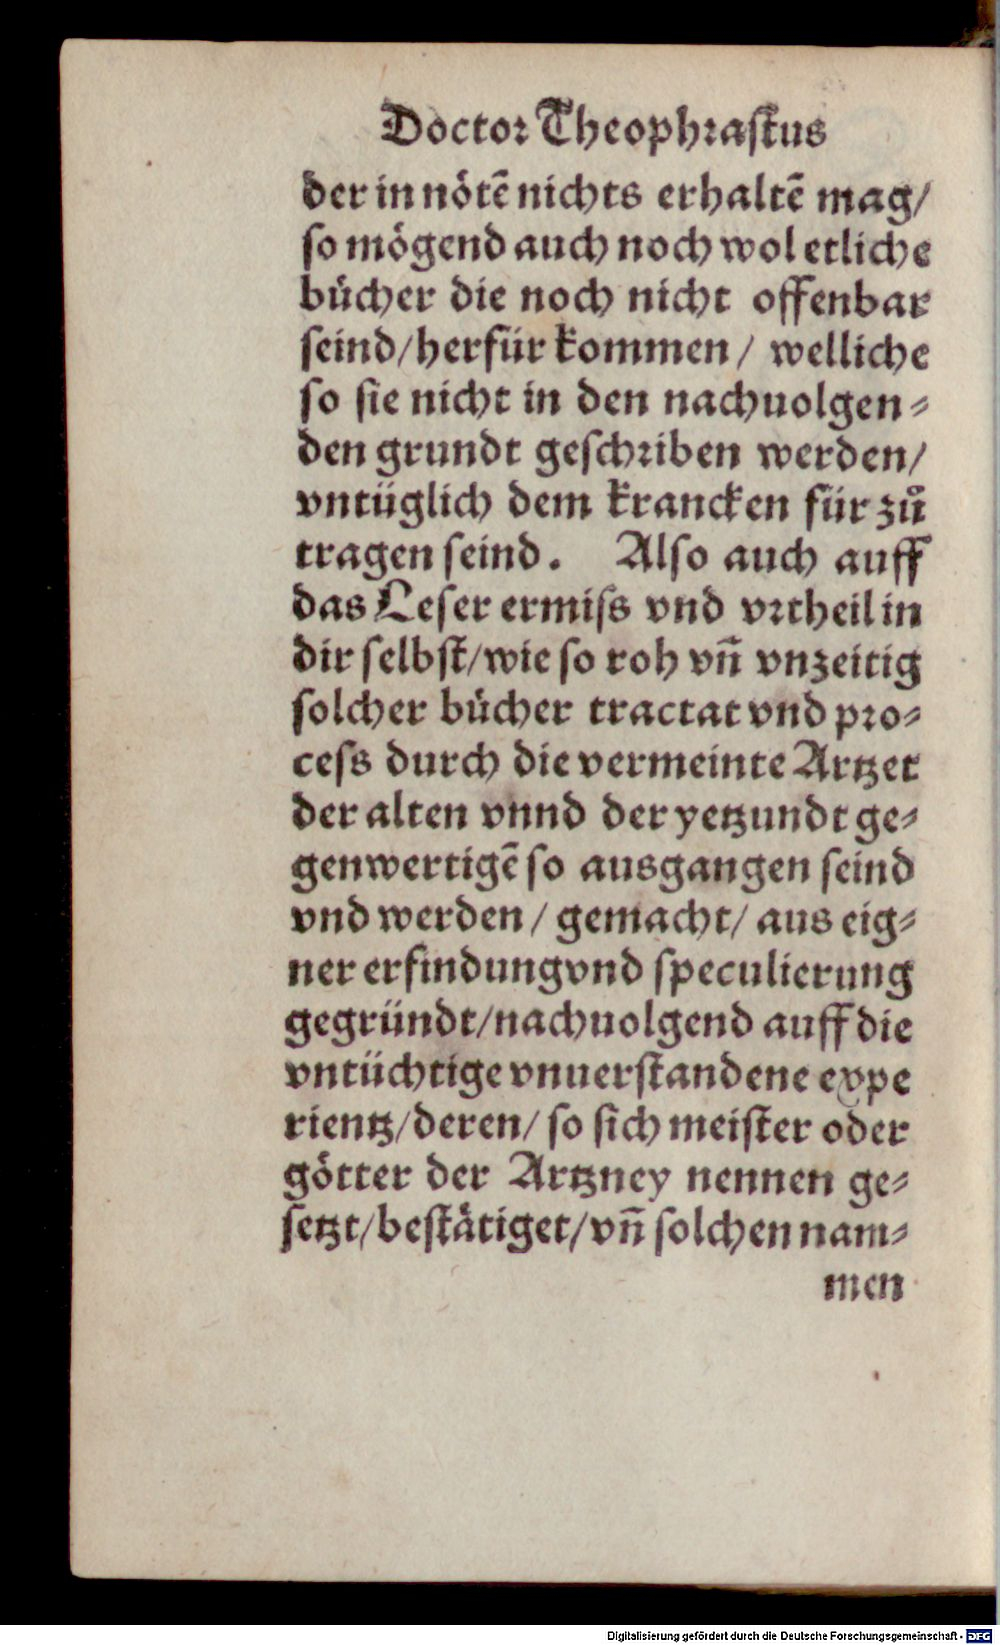 Doctor Theophrastus
der in nötẽ nichts erhaltẽ mag/
so mögend auch noch wol etliche
bücher die noch nicht offenbar
seind/herfür kommen/ welliche
so sie nicht in den nachuolgen⸗
den grundt geschriben werden/
vntüglich dem krancken für zů
tragen seind. Also auch auff
das Leser ermiss vnd vrtheil in
dir selbst/wie so roh vñ vnzeitig
solcher bücher tractat vnd pro⸗
cess durch die vermeinte Artzet
der alten vnnd der yetzundt ge⸗
genwertigẽ so ausgangen seind
vnd werden/ gemacht/ aus eig⸗
ner erfindung vnd speculierung
gegründt/nachuolgend auff die
vntüchtige vnuerstandene expe
rientz/deren/ so sich meister oder
götter der Artzney nennen ge⸗
setzt/bestätiget/vñ solchen nam⸗
men
Digitalisierung gefördert durch die Deutsche Forschungsgemeinschaft - DFG